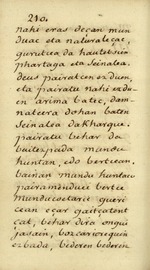 240.
nahi eras deçan mun
duac eta naturaleçac,
gurutcea da hautetsien
phartaga eta seinalea.
deus pairatcen ez duen,
eta pairatu nahi ez du
en arima batec, dam-
natcera dohan baten
seinalea dakharque.
pairatu behar da
baitezpada mundu
huntan, edo bertcean.
bainan mundu huntaco
pairamenduec bertce
munducoetaric gueri
cean eçar gaitçatçen
cat, behar dire ongui
jasain, bozcarioregui
ez bada, bederen bederen